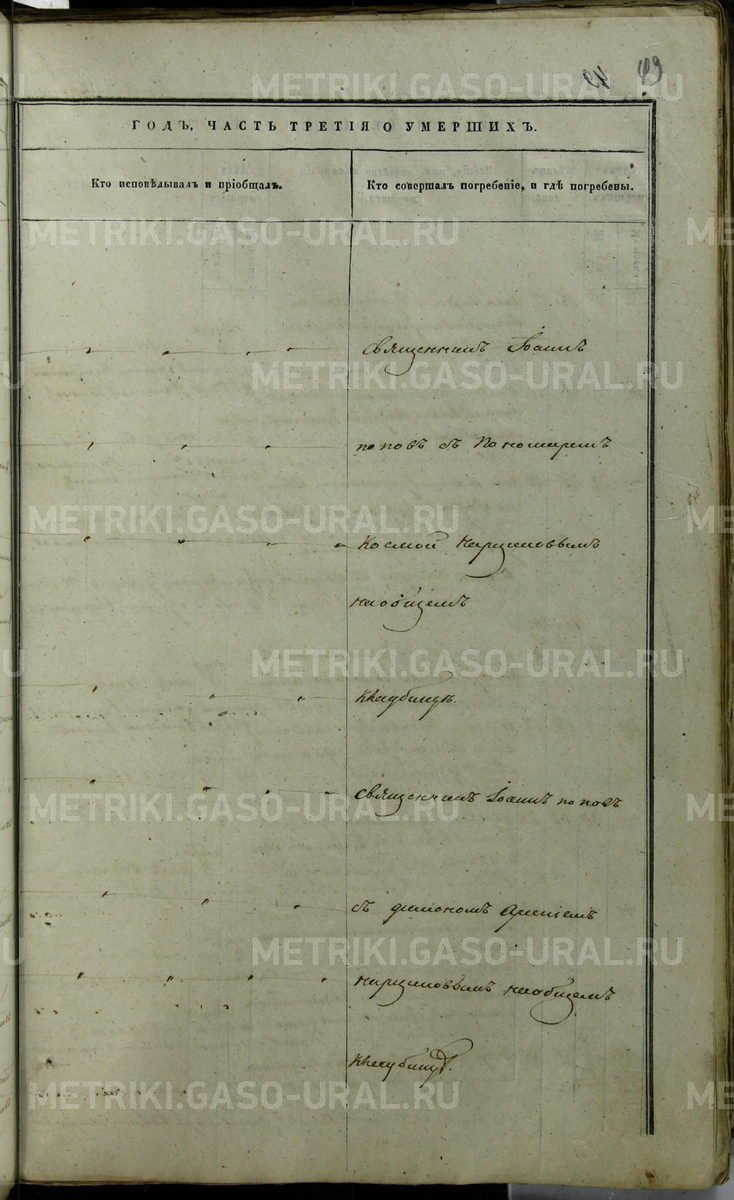 49
ГОДЪ, ЧАСТЬ ТРЕТІЯ О УМЕРШИХЪ.
Кто исповѣдывалъ и пріобщалъ.
Кто совершалъ погребеніе, и гдѣ погребены.
священникъ Іоаннъ
поповъ съ Пономаремъ
Космою
наобщемъ
кладбищѣ.
священникъ Іоаннъ поповъ
съ диакономъ Арсеніемъ
наобщемъ
кладбищѣ.
METRIKI.GASO-URAL.RU